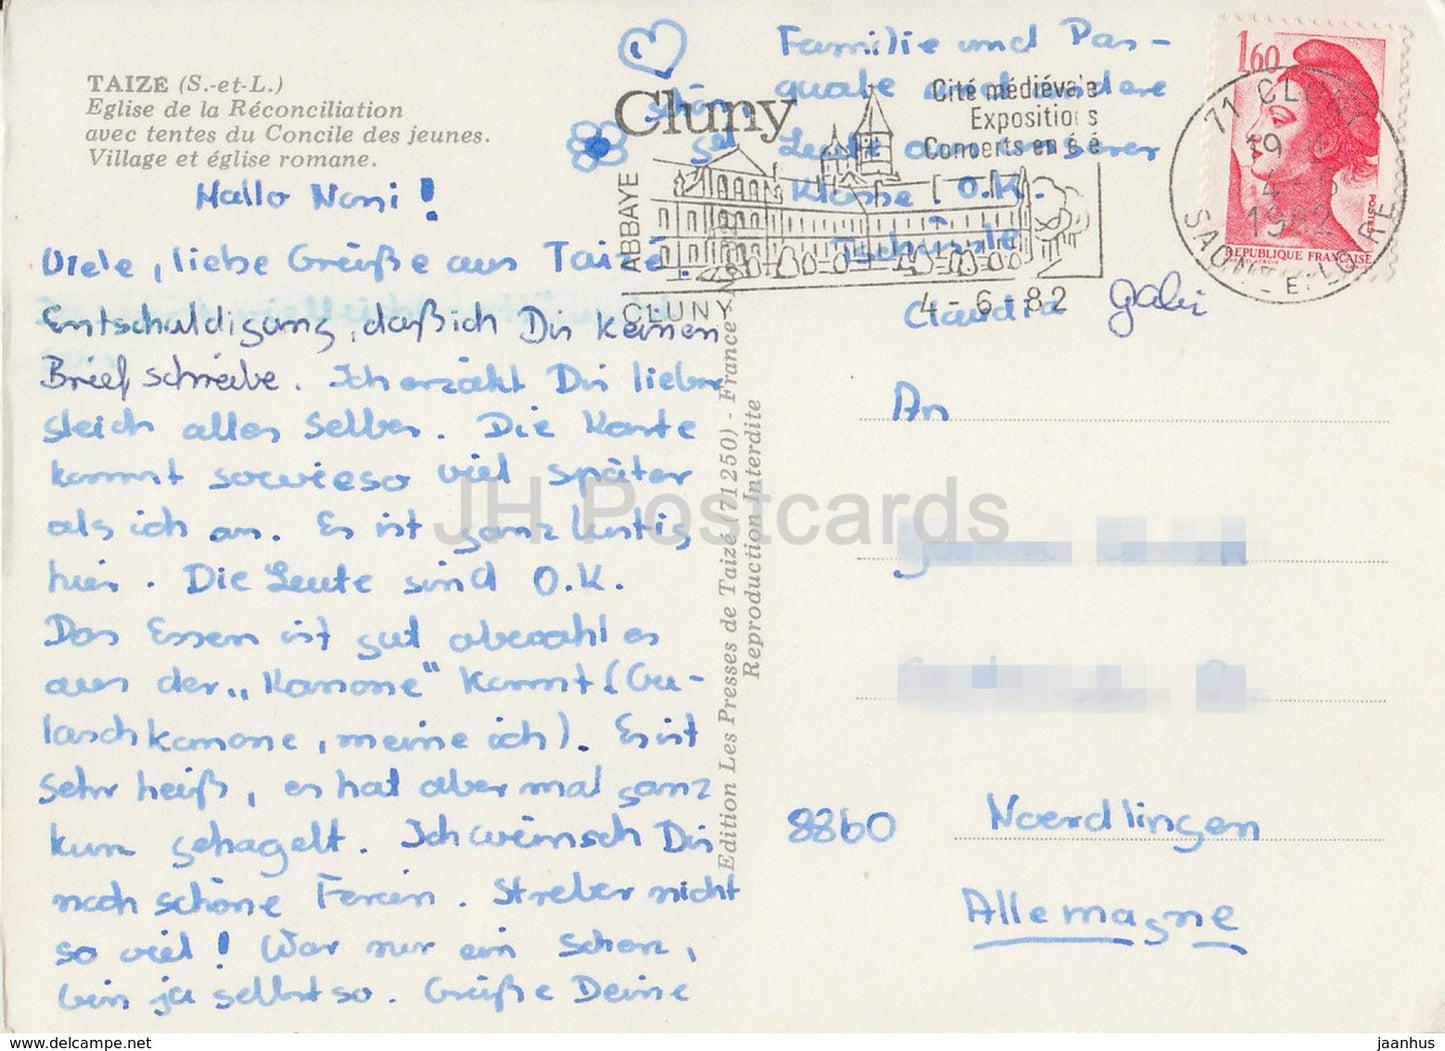 TAIZE (S.-et-L.)
Eglise de la Réconciliation
avec tentes du Concile des jeunes.
Village et église romane.
Hallo Nani!
Viele, liebe Grüße aus Taizé.
Entschuldigung, daß ich Dir keinen
Brief schreibe. Ich erzähl Dir lieber
gleich alles selber. Die Karte
kommt sowieso viel später
als ich an. Es ist ganz lustig
hier. Die Leute sind O.K.
Das Essen ist gut obwohl es
aus der „Kanone" kommt (Gu-
laschkanone, meine ich). Es ist
sehr heiß, es hat aber mal ganz
kurz gehagelt. Ich wünsch Dir
noch schöne Ferien. Streber nicht
so viel! War nur ein Scherz,
bin ja selbst so. Grüße Deine
Familie und Pas-
quale und andere
Leute aus unserer
Klasse O.K.
Tschüsle
Claudia Gabi
Cluny
Cité médiévale
Expositions
Concerts en été
ABBAYE
CLUNY
4-6-82
1,60
POSTES
REPUBLIQUE FRANÇAISE
71 CLUNY
19 H
4-6
1982
SAONE-ET-LOIRE
Edition Les Presses de Taizé (71250) - France
Reproduction Interdite
An
8860 Noerdlingen
Allemagne
JH Postcards
www.delcampe.net
jaanhus